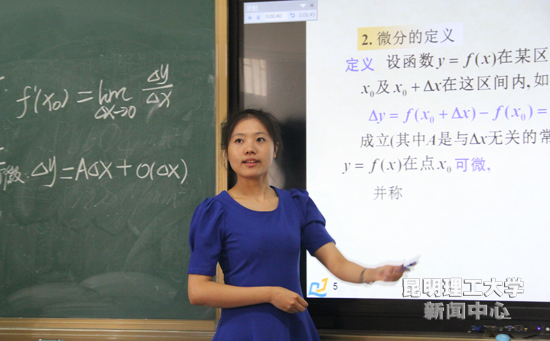 f'(x₀) = lim Δy/Δx
Δx→0
Δy = AΔx + o(Δx)
2. 微分的定义
定义 设函数 y = f(x) 在某区
x₀ 及 x₀ + Δx 在这区间内, 如
Δy = f(x₀ + Δx) − f(x₀) =
成立(其中A是与Δx无关的常
y = f(x) 在点 x₀ 可微,
并称
5
昆明理工大学
新闻中心